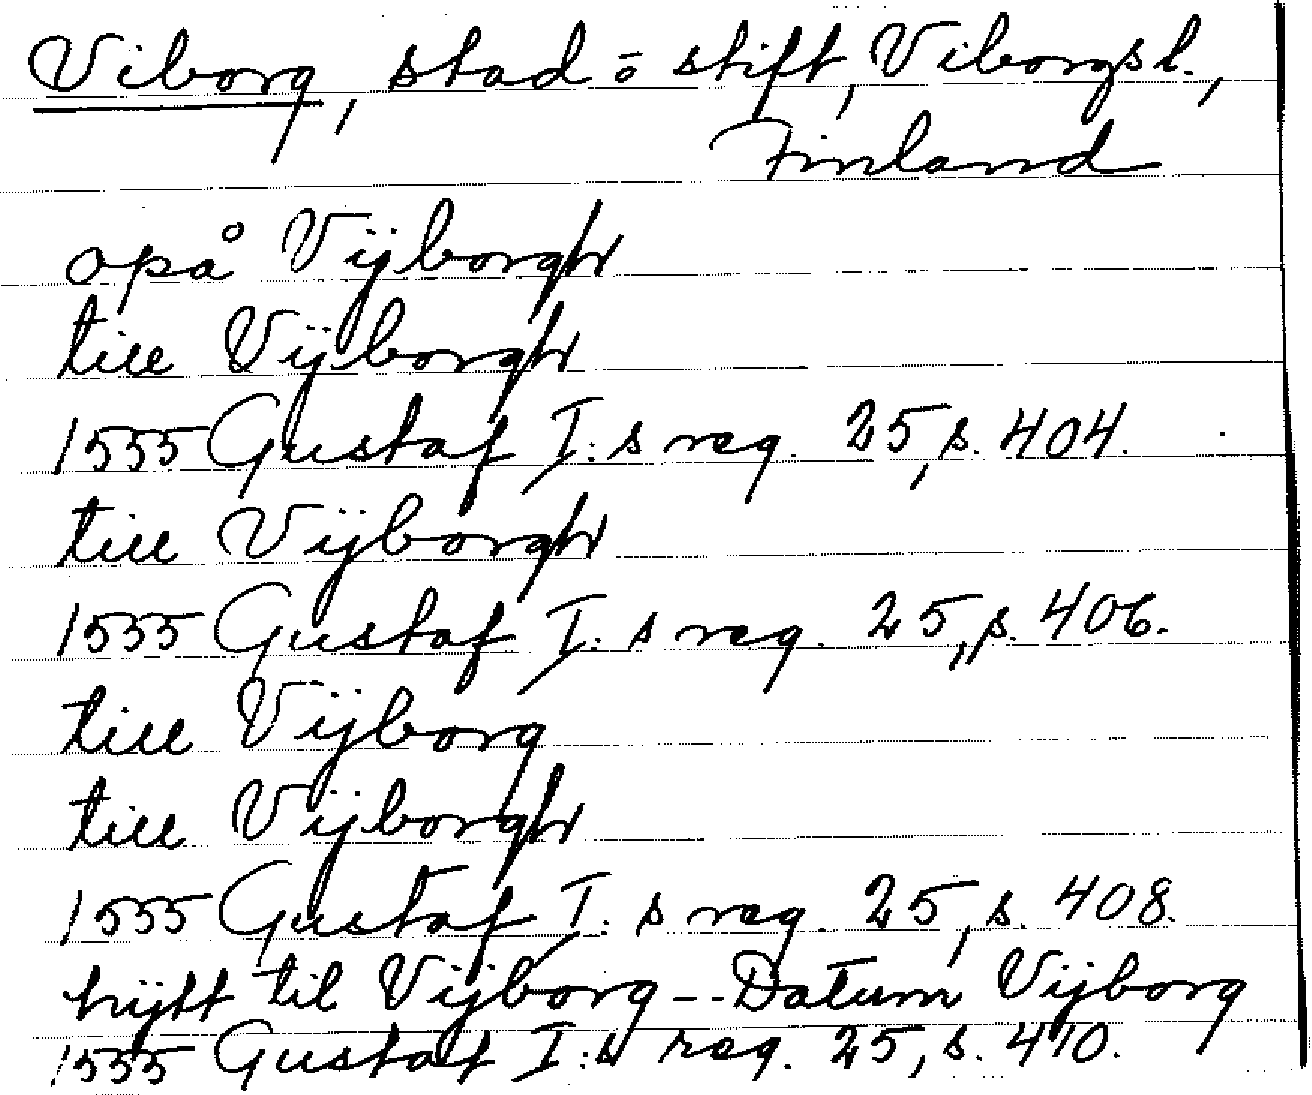 Viborg, stad o stift, Viborgs l.,
Finland
opå Vijborgh
till Vijborgh
1555 Gustaf I:s reg. 25, s. 404.
till Vijborgh
1555 Gustaf I:s reg. 25, s. 406.
till Vijborg
till Vijborgh
1555 Gustaf I:s reg. 25, s. 408.
hijtt til Vijborg -- Datum Vijborg
1555 Gustaf I:s reg. 25, s. 410.